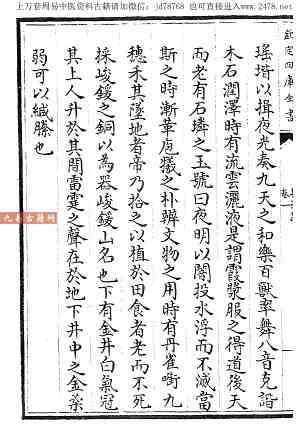 上万套周易中医资料古籍请加微信：jd78768 也可直接进入www.2478.net
欽定四庫全書
瑤壇以揖夜光奏九天之和樂百獸率舞八音克諧
木石潤澤時有流雲灑液是謂霞漿服之得道後天
而老有石璘之玉號曰夜明以闇投水浮而不滅當
斯之時漸革庖犧之朴辨文物之用時有丹雀啣九
穗禾其墜地者帝乃拾之以植於田食者老而不死
採峻鍰之銅以為器峻鍰山名也下有金井白氣冠
其上人升於其間雷霆之聲在於地下井中之金柔
弱可以緘縢也
九易古籍网